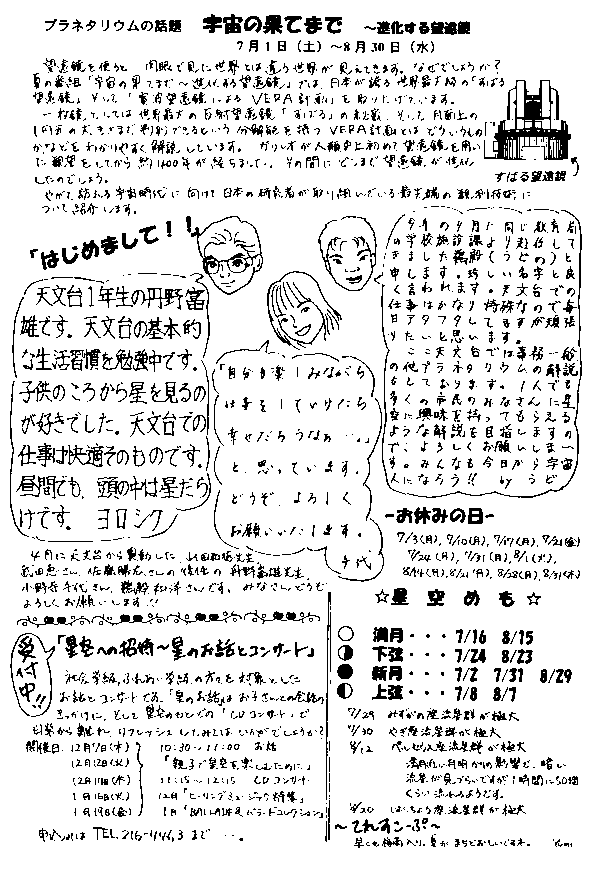 プラネタリウムの話題　宇宙の果てまで　～進化する望遠鏡
7月1日（土）～8月30日（水）
望遠鏡を使うと 肉眼で見た世界とは違う世界が見えてきます。なぜでしょうか？
夏の番組「宇宙の果てまで～進化する望遠鏡」では、日本が誇る世界最大級の「すばる
望遠鏡」そして「電波望遠鏡によるVERA計画」を取り上げています。
一枚鏡としては世界最大の反射望遠鏡「すばる」の
かなどをわかりやすく解説しています。ガリレオが人類史上初めて望遠鏡を用い
た観望をしてから約400年が経ちました。その間にどこまで望遠鏡が進化
したのでしょう。
やがて訪れる宇宙時代に向けて日本の研究者が取り組んでいる最先端の観測技術に
ついて紹介します。
すばる望遠鏡
「はじめまして！！
天文台1年生の丹野富
雄です。天文台の基本的
な生活習慣を勉強中です。
子供のころから星を見るの
が好きでした。天文台での
仕事は快適そのものです。
昼間でも、頭の中は星だら
けです。　ヨロシク
「自分も楽しみながら
仕事をしていけたら
幸せだろうなぁ…。」
と、思っています。
どうぞ、よろしく
お願いいたします。
千代
今年の4月に同じ教育局
の学校施設課より赴任して
きました鵜殿（うどの）と
申します。珍しい名字と良
く言われます。天文台での
仕事はかなり特殊なので毎
日アタフタしてますが頑張
りたいと思います。
ここ天文台では事務一般
の他プラネタリウムの解説
もしております。1人でも
多くの市民のみなさんに星
空に興味を持ってもらえる
ような解説を目指しますの
で、よろしくお願いしま～
す。みんなも今日から宇宙
人になろう!!　by うど
4月に天文台から異動した
小野寺千代さん、鵜殿和洋さんです。みなさんどうぞ
よろしくお願いします!!
-お休みの日-
7/3(月),7/10(月),7/17(月),7/21(金)
7/24(月),7/31(月),8/1(火),
8/14(月),8/21(月),8/28(月),8/31(木)
☆星空めも☆
満月・・・7/16　8/15
下弦・・・7/24　8/23
新月・・・7/2　7/31　8/29
上弦・・・7/8　8/7
7/29　みずがめ座流星群が極大
7/30　やぎ座流星群が極大
8/12　ペルセウス座流星群が極大
満月近い月明かりの影響で、暗い
流星が見づらいですが1時間に50個
くらい流れるようです。
8/20　はくちょう座流星群が極大
～てれすこーぷ～
受付中!!
「星空への招待～星のお話とコンサート」
社会学級、ふれあい学級の方々を対象とした
お話とコンサートです。「星のお話」はお子さんとの会話の
きっかけに、そして星空のもとでの「CDコンサート」で
日常から離れ、リフレッシュしてみてはいかがでしょうか？
開催日　12月7日(木)　10:30～11:00　お話
12月12日(火)　「親子で星空を楽しむために」
12月14日(木)　11:15～12:15　CDコンサート
1月16日(火)　12月「ヒーリングミュージック特集」
1月19日(金)　1月
申込みは TEL.216-4463 まで…。